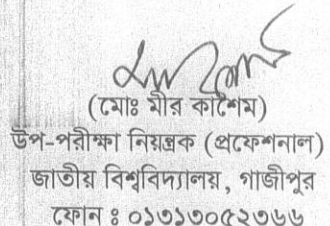 (মোঃ মীর কাশেম)
উপ-পরীক্ষা নিয়ন্ত্রক (প্রফেশনাল)
জাতীয় বিশ্ববিদ্যালয়, গাজীপুর
ফোন ঃ ০১৭১৭০৫২৩৬৬